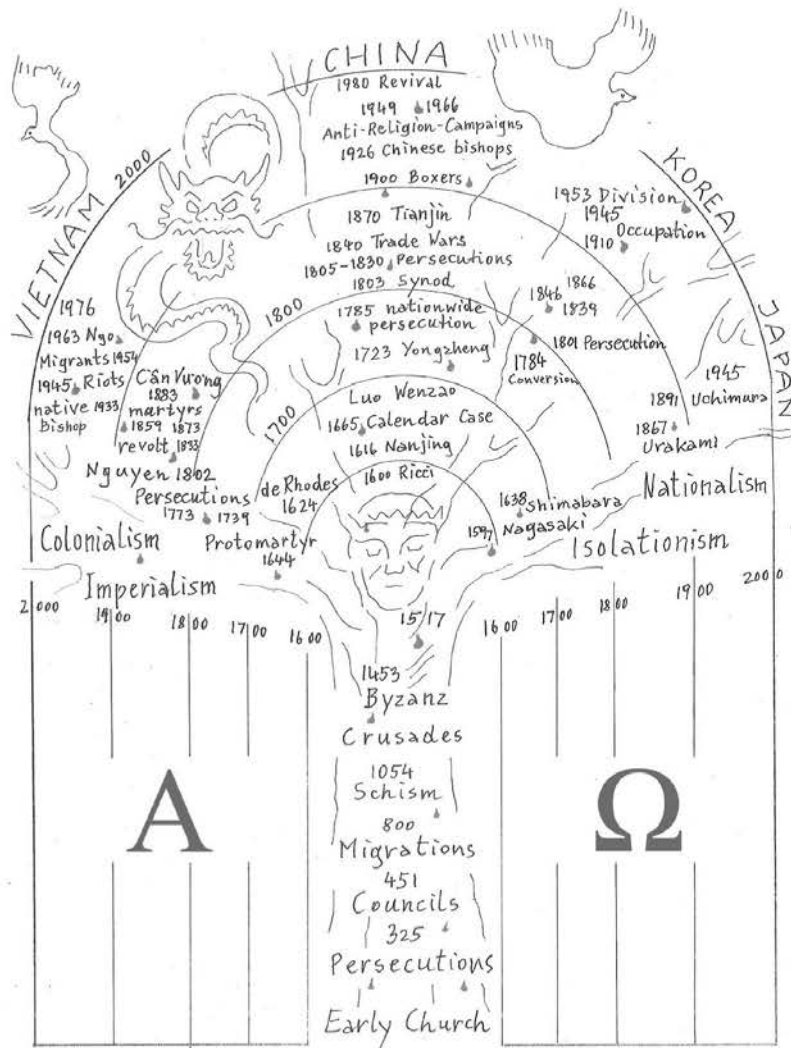 CHINA
1980 Revival
1949 1966
Anti-Religion-Campaigns
1926 Chinese bishops
1900 Boxers
1870 Tianjin
1840 Trade Wars
1805-1830 Persecutions
1803 Synod
1785 nationwide
persecution
1723 Yongzheng
Luo Wenzao
1665 Calendar Case
1616 Nanjing
1600 Ricci
VIETNAM
2000
1800
1700
1976
1963 Ngo
Migrants 1954
1945 Riots
native 1933
Bishop
Cân Vương
1883
martyrs
1859 1873
revolt 1833
Nguyen 1802
Persecutions
1773 1739
de Rhodes
1624
Protomartyr
1644
Colonialism
Imperialism
KOREA
1953 Division
1945
Occupation
1910
1866
1846
1839
1801 Persecution
1784
Conversion
JAPAN
1945
Uchimura
1891
1867
Urakami
1638 Shimabara
1597 Nagasaki
Nationalism
Isolationism
2000 1900 1800 1700 1600
1600 1700 1800 1900 2000
1517
1453
Byzanz
Crusades
1054
Schism
800
Migrations
451
Councils
325
Persecutions
Early Church
Α
Ω